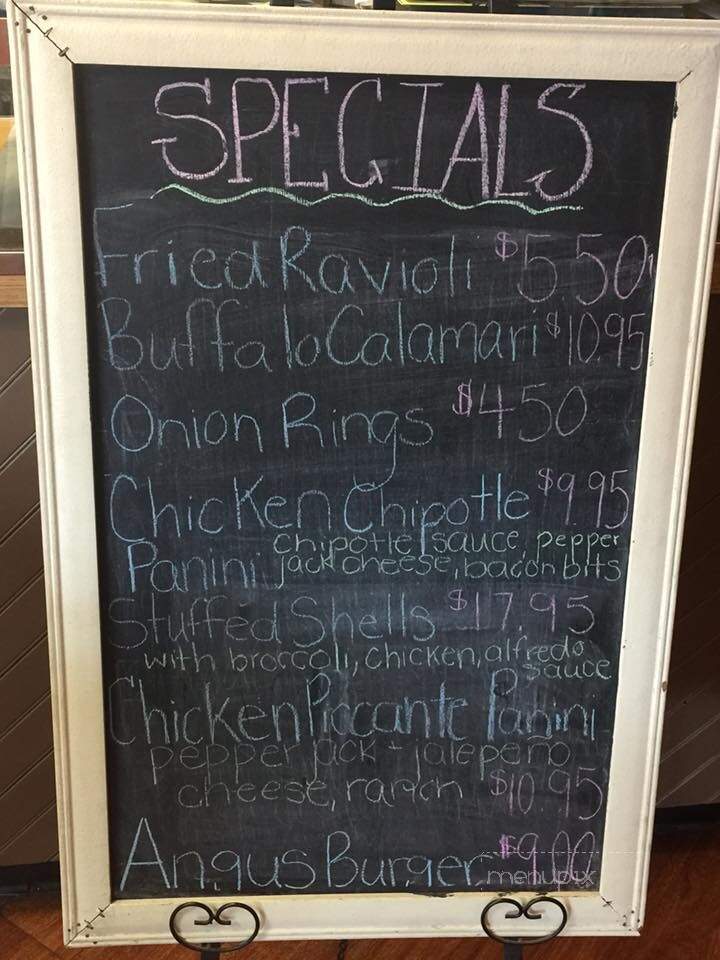 SPECIALS
Fried Ravioli $5.50
Buffalo Calamari $10.95
Onion Rings $4.50
Chicken Chipotle $9.95
Panini chipotle sauce, pepper
jack cheese, bacon bits
Stuffed Shells $17.95
with broccoli, chicken, alfredo
sauce
Chicken Piccante Panini
pepper jack - jalepeño
cheese, ranch $10.95
Angus Burger $9.00
menupix